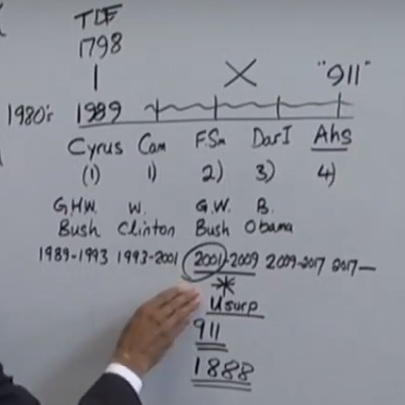 TLF
1798
"911"
1980's 1989
Cyrus Cam F.Sm DarI Ahs
(1) 1) 2) 3) 4)
G.H.W. W. G.W. B.
Bush Clinton Bush Obama
1989-1993 1993-2001 2001-2009 2009-2017 2017—
Usurp
911
1888